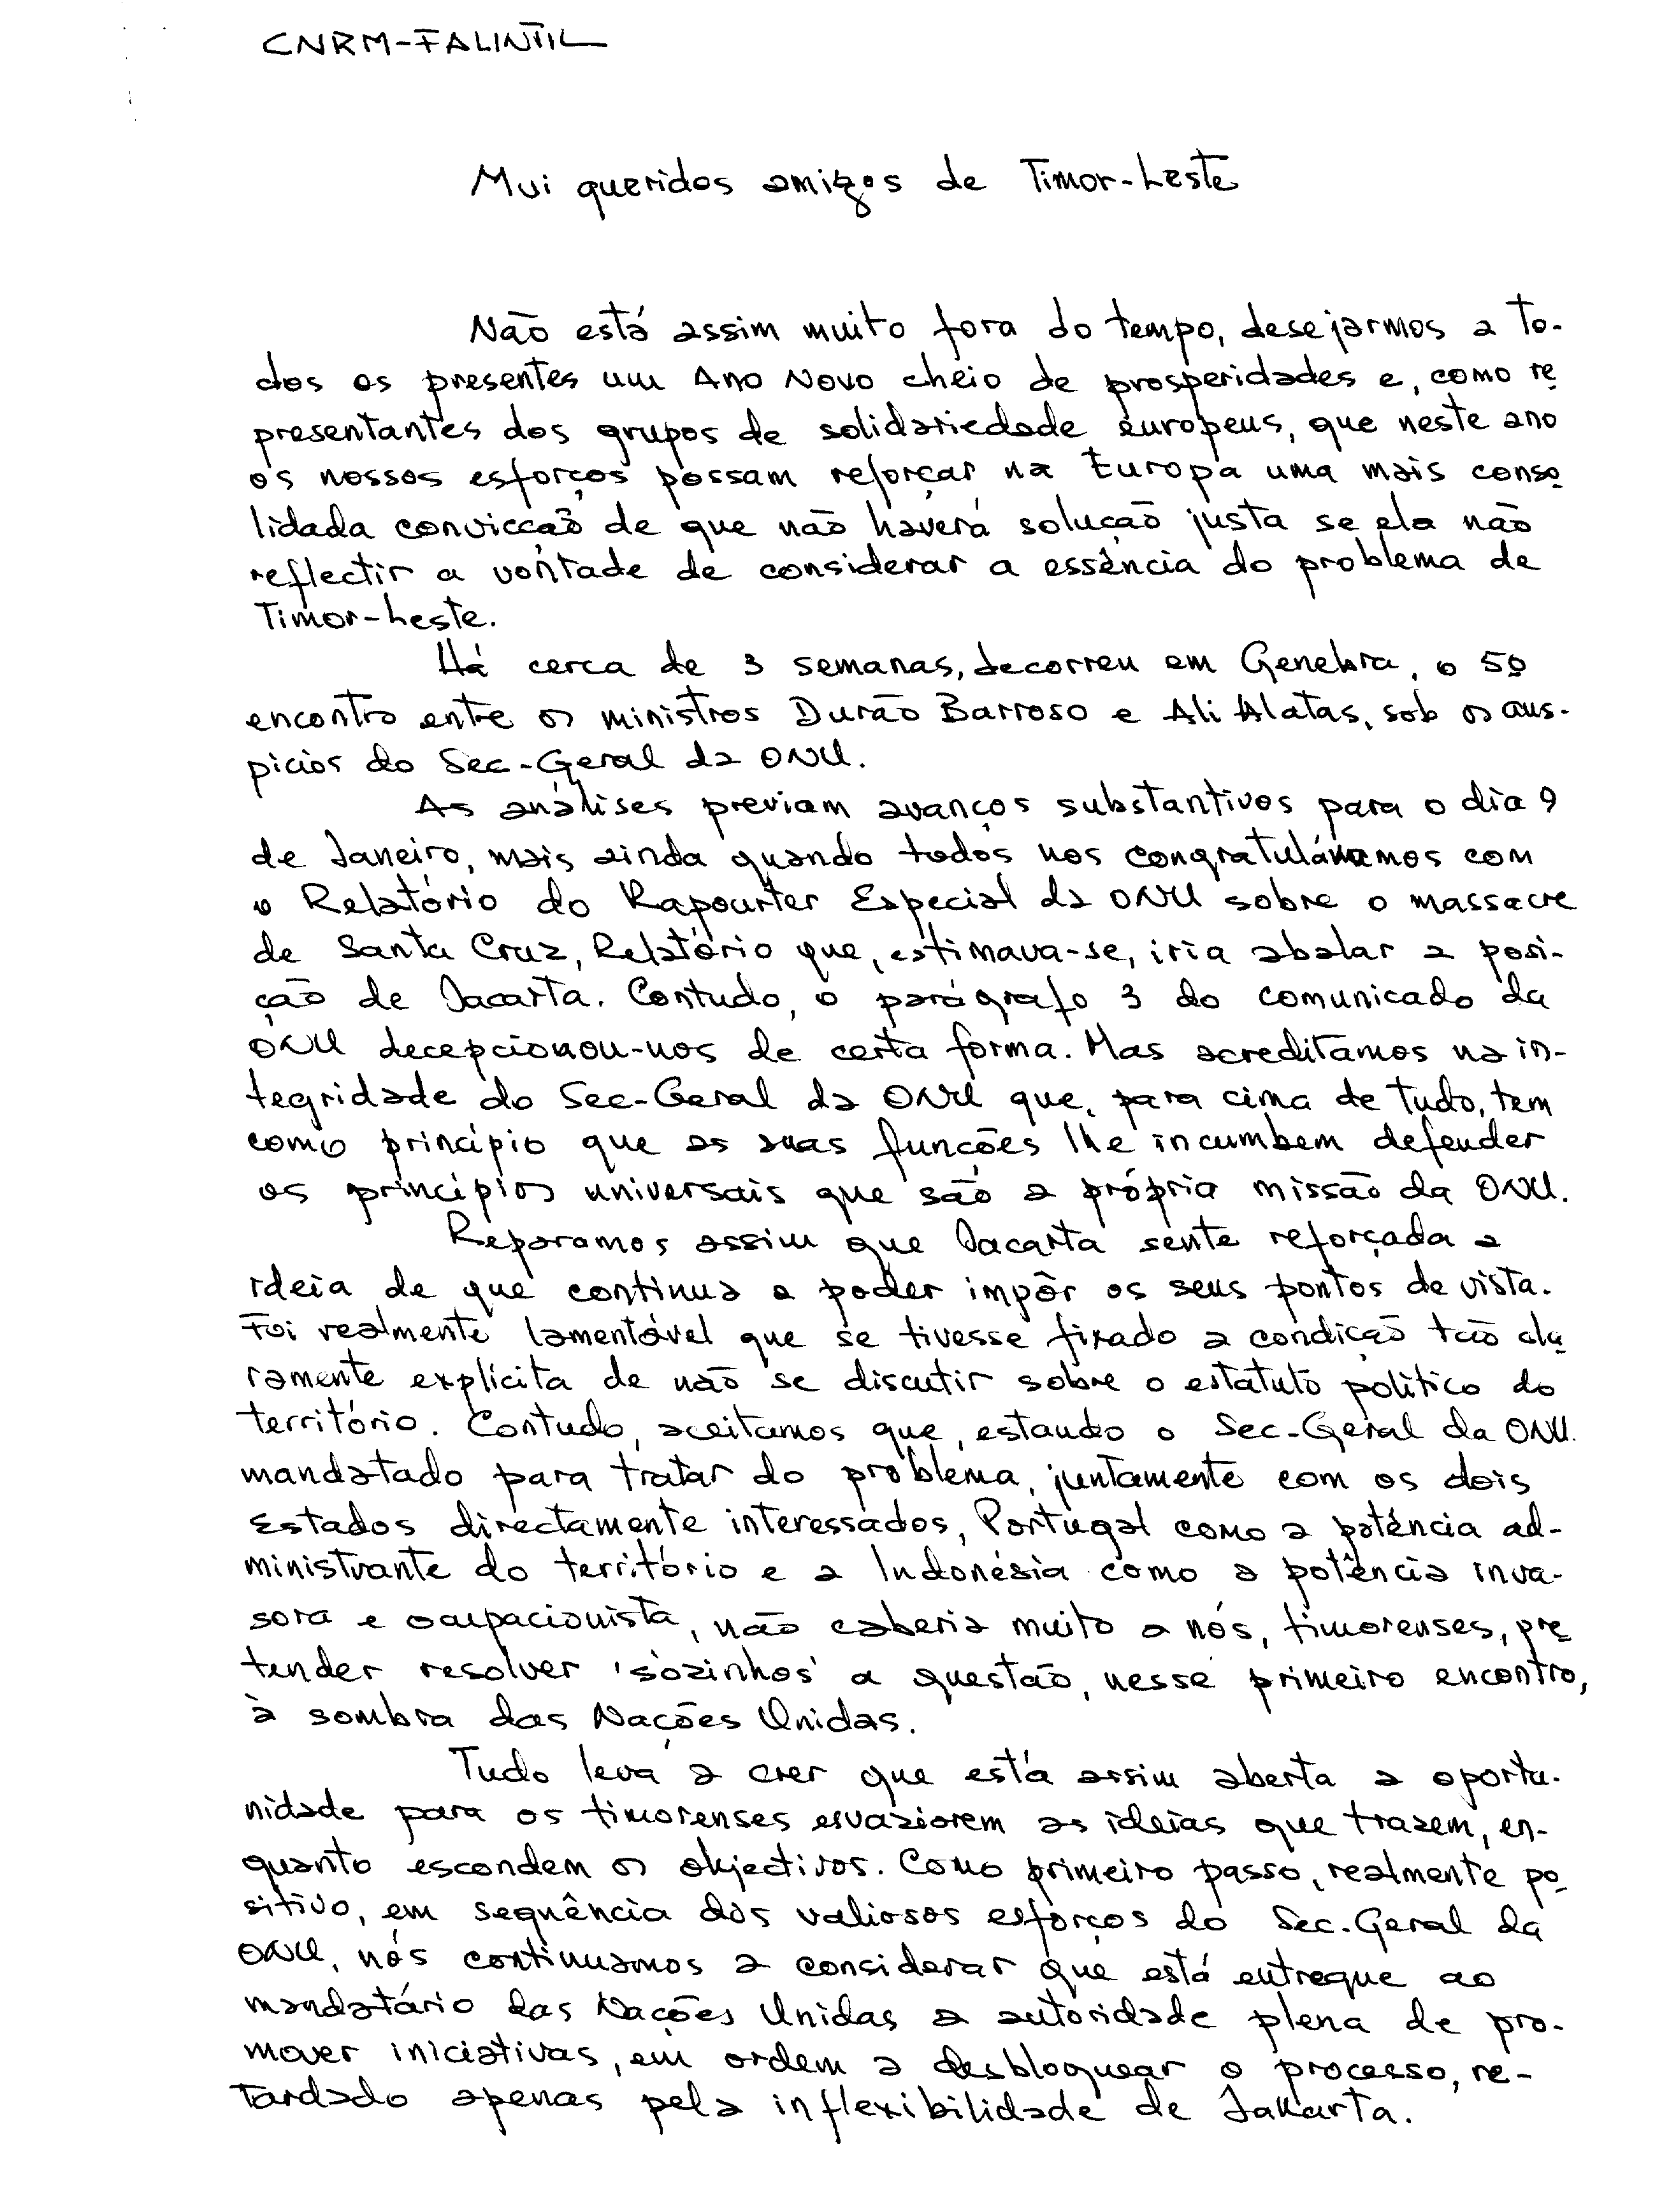 CNRM-FALINTIL
Mui queridos amigos de Timor-Leste
Não está assim muito fora do tempo, desejarmos a to-
dos os presentes um Ano Novo cheio de prosperidades e, como re
presentantes dos grupos de solidariedade europeus, que neste ano
os nossos esforços possam reforçar na Europa uma mais conso
lidada convicção de que não haverá solução justa se ela não
reflectir a vontade de considerar a essência do problema de
Timor-Leste.
Há cerca de 3 semanas, decorreu em Genebra, o 5º
encontro entre os ministros Durão Barroso e Ali Alatas, sob os aus-
pícios do Sec-Geral da ONU.
As análises previam avanços substantivos para o dia 9
de Janeiro, mais ainda quando todos nos congratulávamos com
o Relatório do Rapourter Especial da ONU sobre o massacre
de Santa Cruz, Relatório que, estimava-se, iria abalar a posi-
ção de Jacarta. Contudo, o parágrafo 3 do comunicado da
ONU decepcionou-nos de certa forma. Mas acreditamos na in-
tegridade do Sec-Geral da ONU que, para cima de tudo, tem
como princípio que as suas funções lhe incumbem defender
os princípios universais que são a própria missão da ONU.
Reparamos assim que Jacarta sente reforçada a
ideia de que continua a poder impôr os seus pontos de vista.
Foi realmente lamentável que se tivesse fixado a condição tão cla
ramente explícita de não se discutir sobre o estatuto político do
território. Contudo, aceitamos que, estando o Sec-Geral da ONU
mandatado para tratar do problema, juntamente com os dois
Estados directamente interessados, Portugal como a potência ad-
ministrante do território e a Indonésia como a potência inva-
sora e ocupacionista, não caberia muito a nós, timorenses, pre
tender resolver 'sozinhos' a questão, nesse primeiro encontro,
à sombra das Nações Unidas.
Tudo leva a crer que está assim aberta a oportu-
nidade para os timorenses esvaziarem as ideias que trazem, en-
quanto escondem os objectivos. Como primeiro passo, realmente po
sitivo, em sequência dos valiosos esforços do Sec-Geral da
ONU, nós continuamos a considerar que está entregue ao
mandatário das Nações Unidas a autoridade plena de pro-
mover iniciativas, em ordem a desbloquear o processo, re-
tardado apenas pela inflexibilidade de Jakarta.